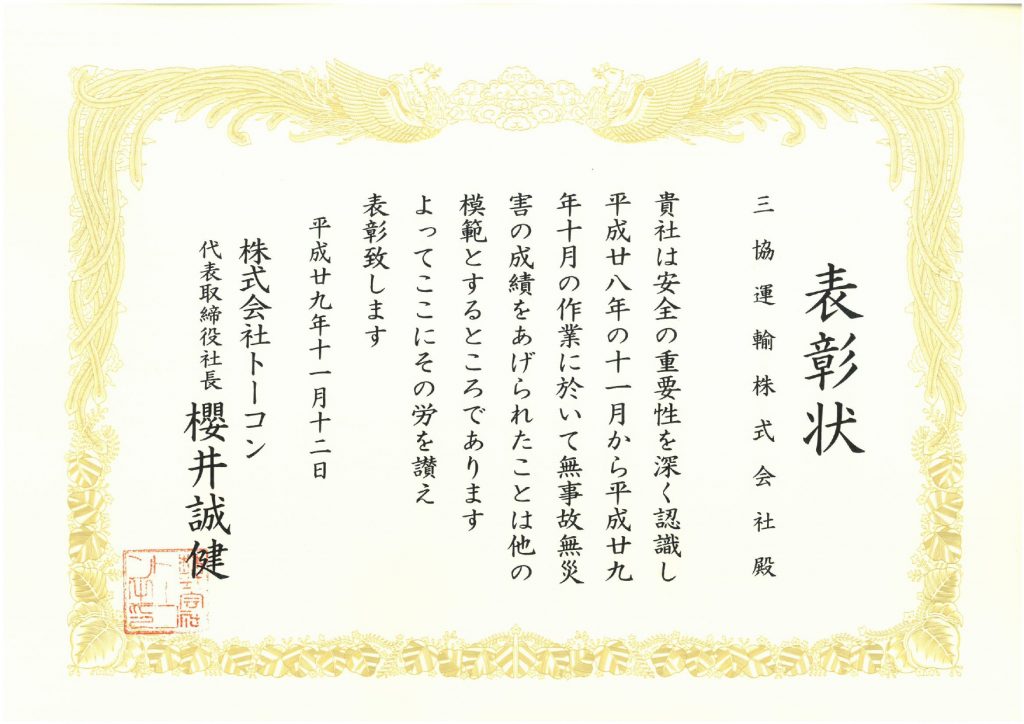 表彰状
三協運輸株式会社殿
貴社は安全の重要性を深く認識し
平成廿八年の十一月から平成廿九
年十月の作業に於いて無事故無災
害の成績をあげられたことは他の
模範とするところであります
よってここにその労を讃え
表彰致します
平成廿九年十一月十二日
株式会社トーコン
代表取締役社長 櫻井誠健